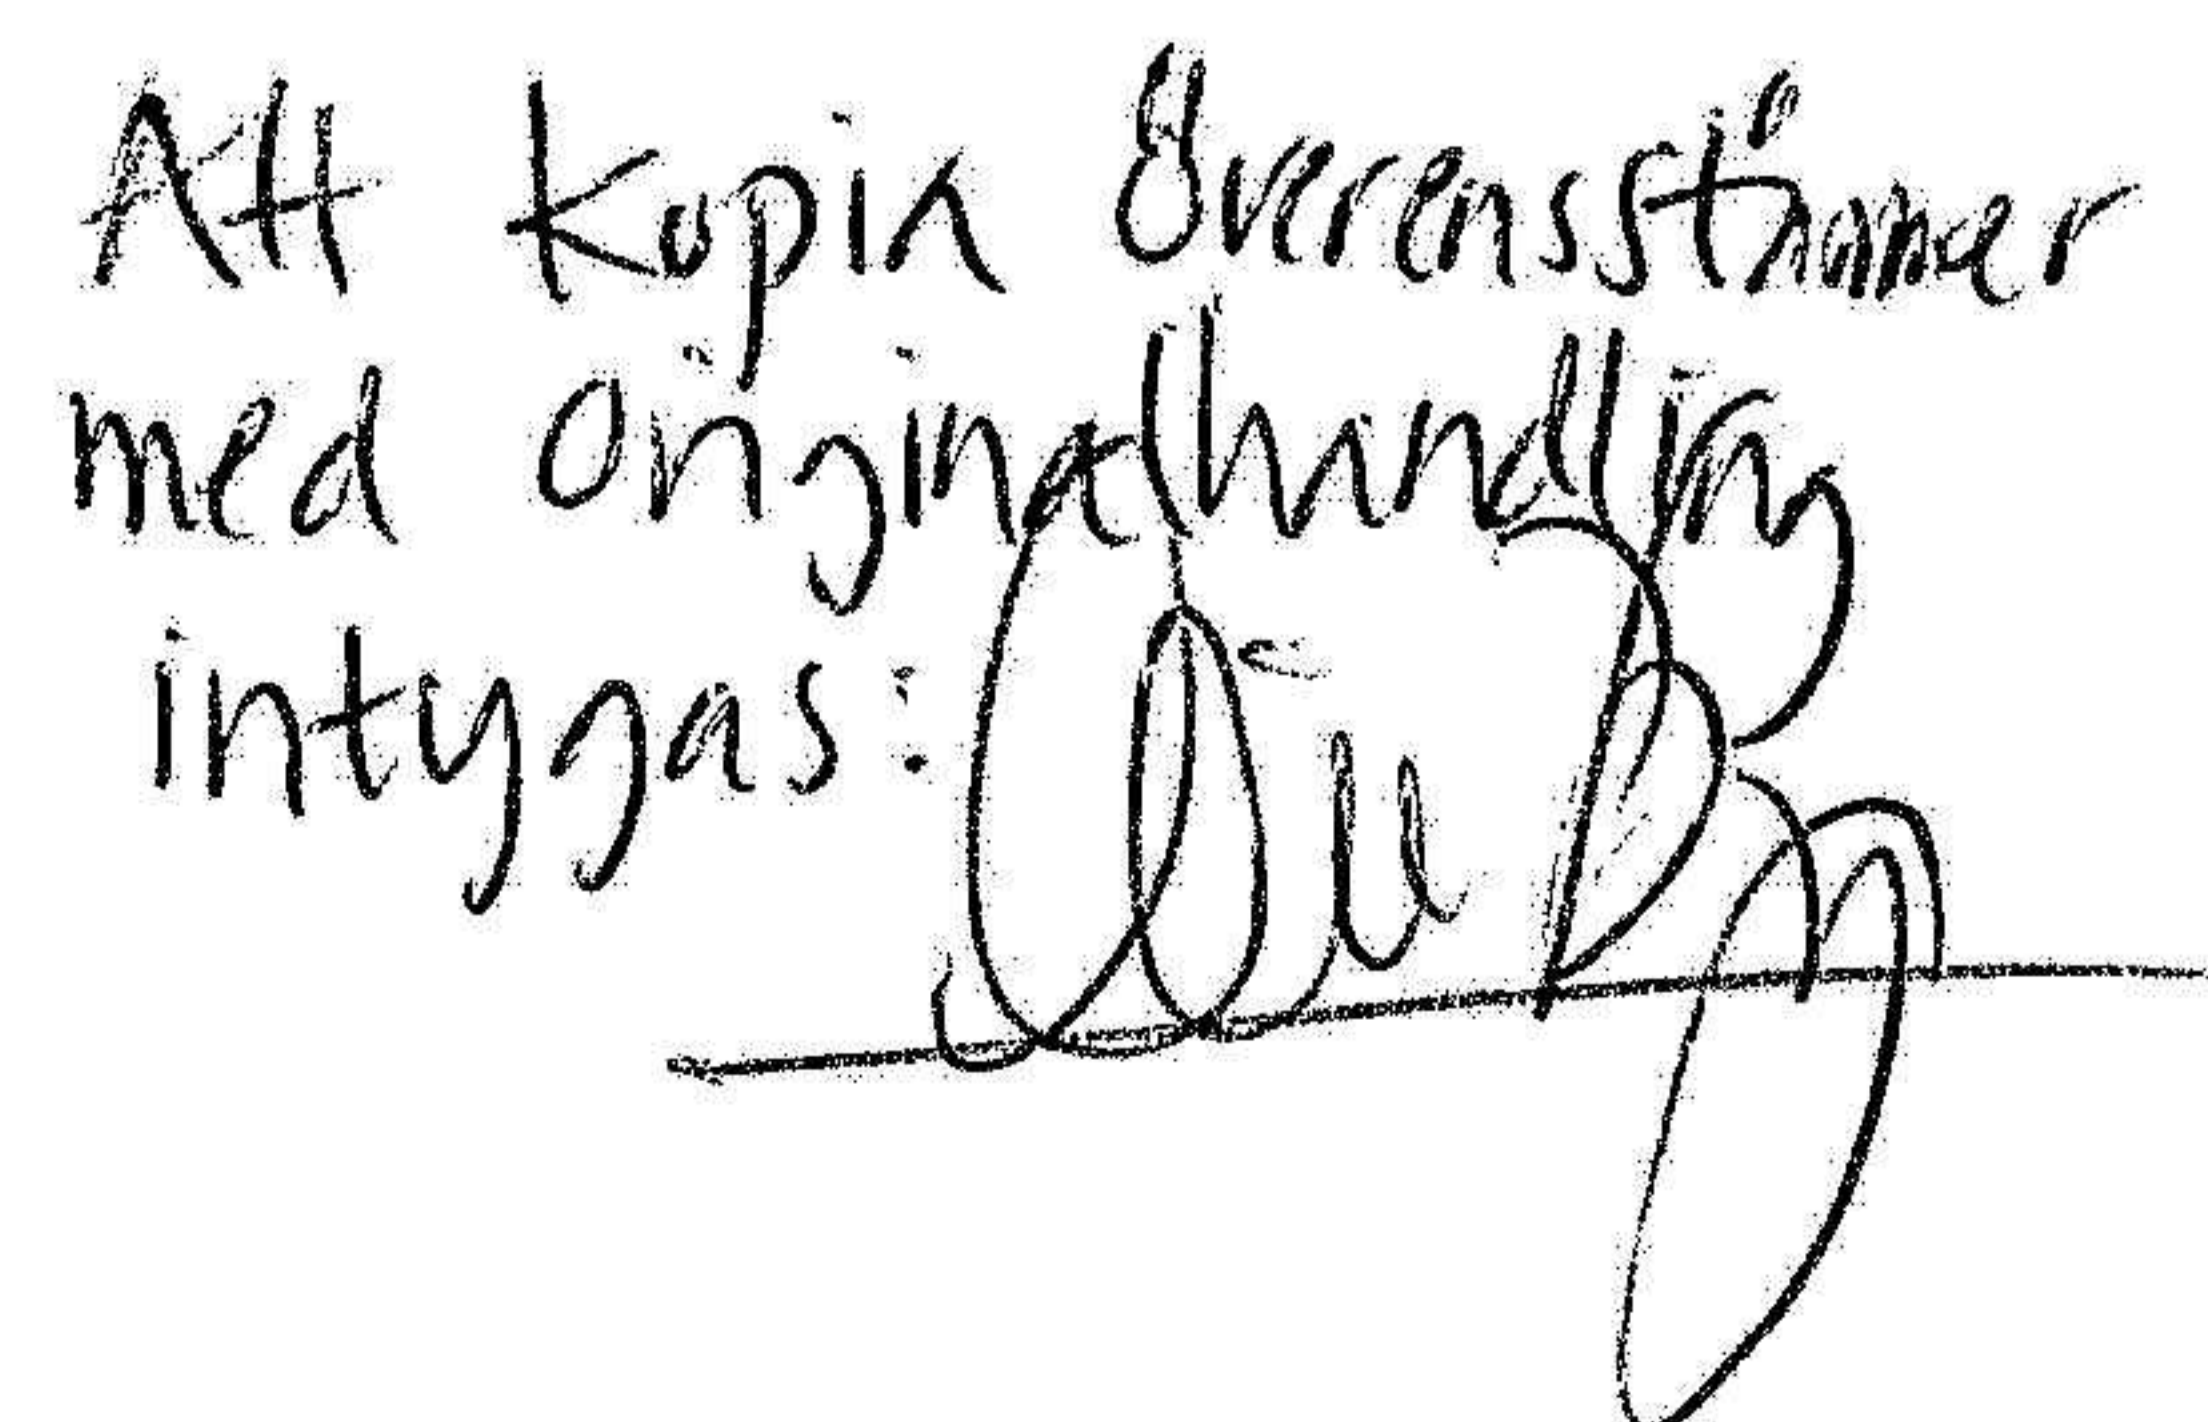 Att kopia överensstämmer
med originalhandling
intygas: